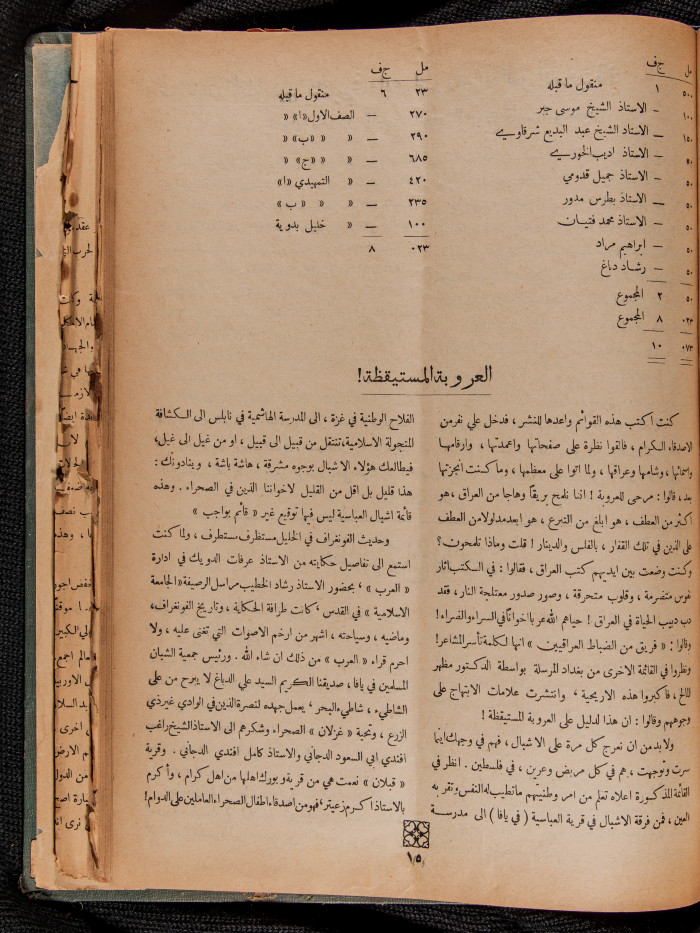 مل ج ف
٥٠٠ ١ منقول ما قبله
١٠٠ – الاستاذ الشيخ موسى جبر
١٥٠ – الاستاذ الشيخ عبد البديع شرقاوي
٥٠ – الاستاذ اديب الخوري
٥٠ – الاستاذ جميل قدومي
٥٠ – الاستاذ بطرس مدور
٥٠ – الاستاذ محمد فتيان
٥٠ – ابراهيم مراد
٥٠ – رشاد دباغ
٢ المجموع
٠٢٣ ٨ المجموع
٠٧٣ ١٠
مل ج ف
٢٣ ٦ منقول ما قبله
٢٧٠ – الصف الاول «ا» «
٢٩٠ – « « «ب» «
٦٨٥ – « « «ج» «
٤٢٠ – « التمهيدي «ا»
٢٣٥ – « « « ب »
١٠٠ – « خليل بدوية
٠٢٣ ٨
العروبة المستيقظة!
كنت اكتب هذه القوائم واعدها للنشر، فدخل علي نفر من
الاصدقاء الكرام، فالقوا نظرة على صفحاتها واعمدتها، وارقامها
واسمائها، وشامها وعراقها، ولما اتوا على معظمها، وما كنت انجزتها
بعد، قالوا: مرحى للعروبة! اننا نلمح بريقاً وهاجا من العراق، هو
اكثر من العطف، هو ابلغ من التبرع، هو ابعد مدلولا من العطف
على الذين في تلك القفار، بالفلس والدينار! قلت وماذا تلمحون؟
وكنت وضعت بين ايديهم كتب العراق، فقالوا: في الكتب اثار
نفوس متضرمة، وقلوب متحرقة، وصور صدور معتلجة النار، فقد
دب دبيب الحياة في العراق! حياهم الله عربا اخواناً في السراء والضراء!
وقالوا: « فريق من الضباط العراقيين » انها لكلمة تأسر المشاعر!
ونظروا في القائمة الاخرى من بغداد المرسلة بواسطة الدكتور مظهر
للالح، فأكبروا هذه الاريحية، وانتشرت علامات الابتهاج على
وجوههم وقالوا: ان هذا لدليل على العروبة المستيقظة!
ولا بد من ان نعرج كل مرة على الاشبال، فهم في وجهك اينما
سرت وتوجهت، هم في كل مربض وعرين، في فلسطين. انظر في
القائمة المذكورة اعلاه تعلم من امر وطنيتهم ما تطيب له النفس وتقر به
العين، فمن فرقة الاشبال في قرية العباسية (في يافا) الى مدرسة
الفلاح الوطنية في غزة، الى المدرسة الهاشمية في نابلس الى الكشافة
المتجولة الاسلامية، تنتقل من قبيل الى قبيل، او من غيل الى غيل،
فيطالعك هؤلاء الاشبال بوجوه مشرقة، هاشة باشة، وينادونك:
هذا قليل بل اقل من القليل لاخواننا الذين في الصحراء. وهذه
قائمة اشبال العباسية ليس فيها توقيع غير « قائم بواجب »
وحديث الفونغراف في الخليل مستظرف مستطرف، ولما كنت
استمع الى تفاصيل حكايته من الاستاذ عرفات الدويك في ادارة
« العرب »، بحضور الاستاذ رشاد الخطيب مراسل الرصيفة « الجامعة
الاسلامية » في القدس، كانت طرافة الحكاية، وتاريخ الفونغراف،
وماضيه، وسياحته، اشهر من ارخم الاصوات التي تغنى عليه، ولا
احرم قراء « العرب » من ذلك ان شاء الله. ورئيس جمعية الشبان
المسلمين في يافا، صديقنا الكريم السيد علي الدباغ لا يبرح من على
الشاطيء، شاطيء البحر، يعمل جهده لنصرة الذين في الوادي غير ذي
الزرع، وتحية « غزلان » الصحراء وشكرهم الى الاستاذ الشيخ راغب
افندي ابي السعود الدجاني والاستاذ كامل افندي الدجاني. وقرية
« قبلان » نعمت هي من قرية وبورك اهلها من اهل كرام، وأكرم
بالاستاذ أكرم زعيتر، فهو من اصدقاء اطفال الصحراء العاملين على الدوام!
١٥